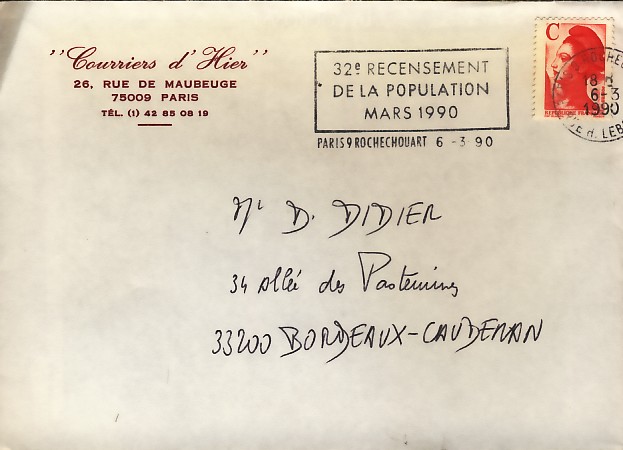 "Courriers d'Hier"
26, RUE DE MAUBEUGE
75009 PARIS
TÉL. (1) 42 85 08 19
32e RECENSEMENT
DE LA POPULATION
MARS 1990
PARIS 9 ROCHECHOUART 6 -3 -90
C
18 H
6-3
1990
Mr D. DIDIER
34 Allée des
33200 BORDEAUX-CAUDERAN